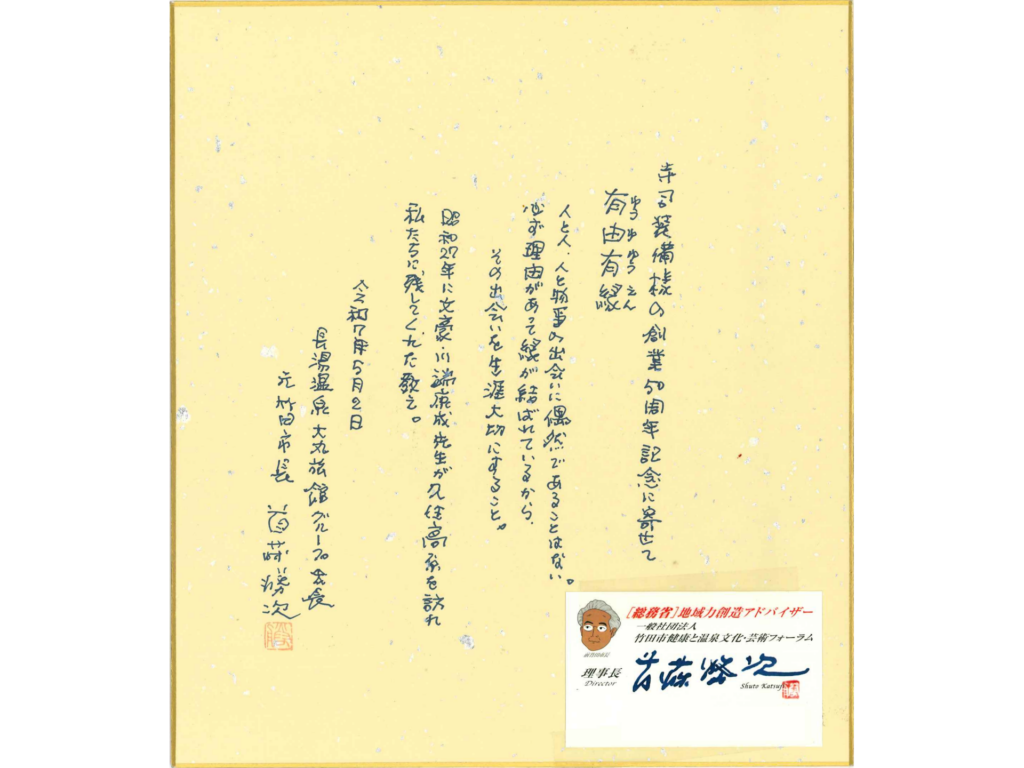 寺司装備様の創業50周年記念に寄せて
有由有縁
ゆうゆゆうえん
人と人、人と物事の出会いに偶然であることはない。
必ず理由があって縁が結ばれているから、
その出会いを生涯大切にすること。
昭和27年に文豪・川端康成先生が久住高原を訪れ
私たちに残してくれた教え。
令和7年5月2日
長湯温泉 大丸旅館グループ会長
元竹田市長 首藤勝次
[総務省]地域力創造アドバイザー
一般社団法人
竹田市健康と温泉文化・芸術フォーラム
理事長 首藤勝次
Director Shuto Katsuji